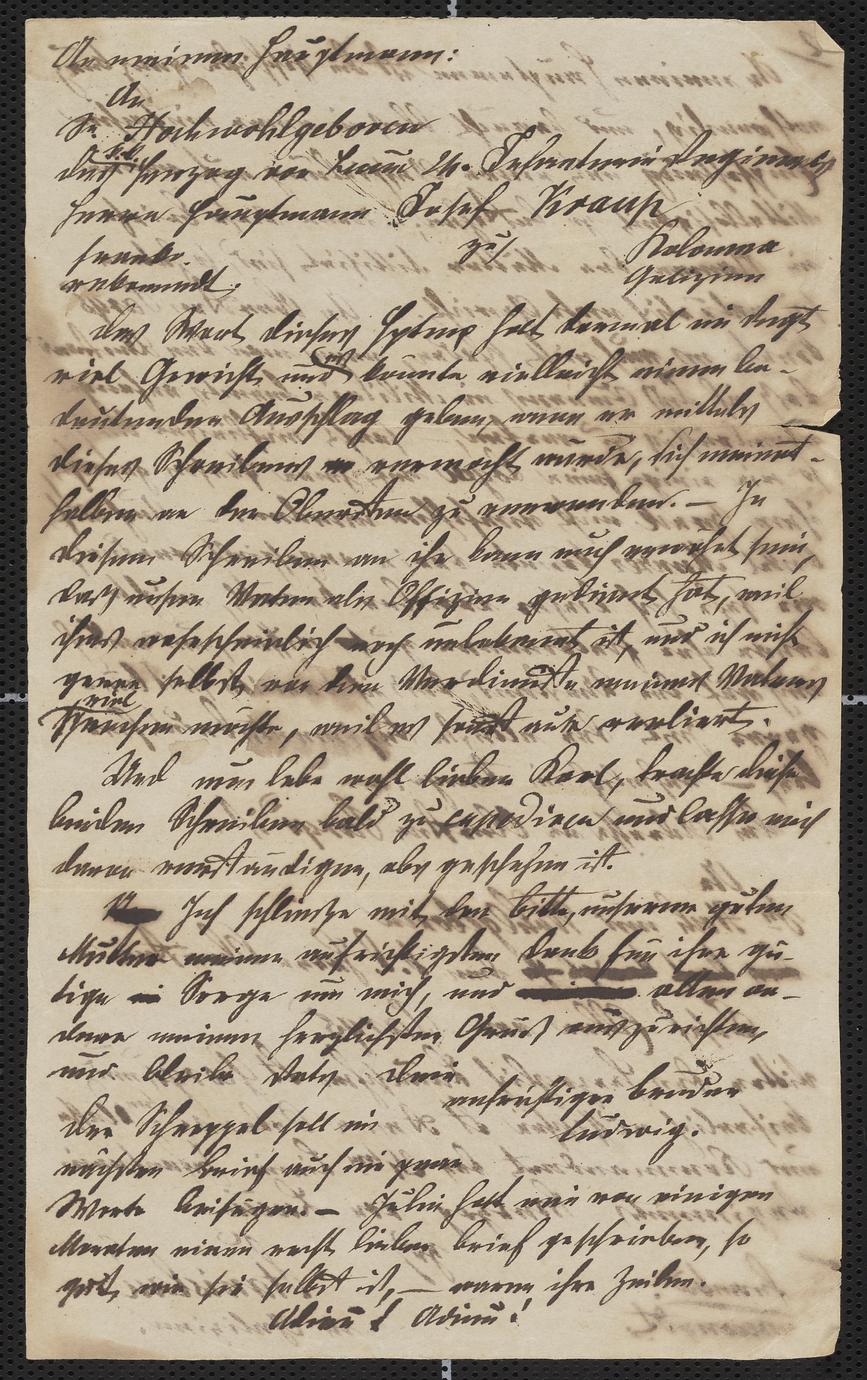 An meinen Hauptmann:
An
Sr. Hochwohlgeboren
des k.k. Herzog von 24. Infanterie Regiments
Herrn Hauptmann Josef Kraup
franko. zu Kolomea
rekomdt. Galizien
Das Wort dieses hat dermal im Regt
viel Gewicht, und es könnte vielleicht einen be-
deutenden Ausschlag geben, wenn er mittels
dieses Schreibens vermocht würde, sich meinet-
halben an den Obersten zu verwenden. — In
diesem Schreiben an ihn kann auch erwähnt sein,
daß unser Vater als Offizier gedient hat, weil
ihm dies wahrscheinlich noch unbekannt ist, und ich nicht
gerne selbst von den Verdiensten meines Vaters
viel sprechen möchte, weil es sonst verliert.
Und nun lebe wohl lieber Karl, trachte diese
beiden Schreiben bald zu expedieren und lasse mich
davon verständigen, obs geschehen ist.
Ich schließe mit der Bitte, unserer guten
Mutter meinen aufrichtigsten Dank für ihre gü-
tige Sorge um mich, und allen an-
dern meinen herzlichsten Gruß auszurichten,
und bleibe stets dein
aufrichtiger Bruder
Ludwig.
Der Schneppel soll im
nächsten Brief auch ein paar
Worte beifügen. — Julie hat mir vor einigen
Monaten einen recht lieben Brief geschrieben, so
gut, wie sie selbst ist, — waren ihre Zeilen.
Adieu! Adieu!